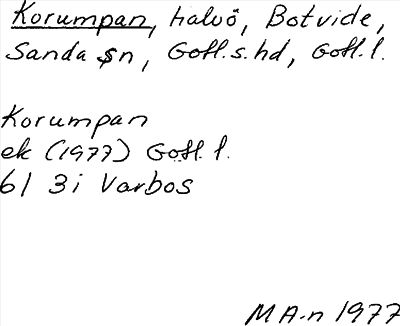 Korumpan, halvö, Botvide,
Sanda sn, Gotl.s.hd, Gotl.l.
Korumpan
ek (1977) Gotl.l.
6I 3i Varbos
MA-n 1977